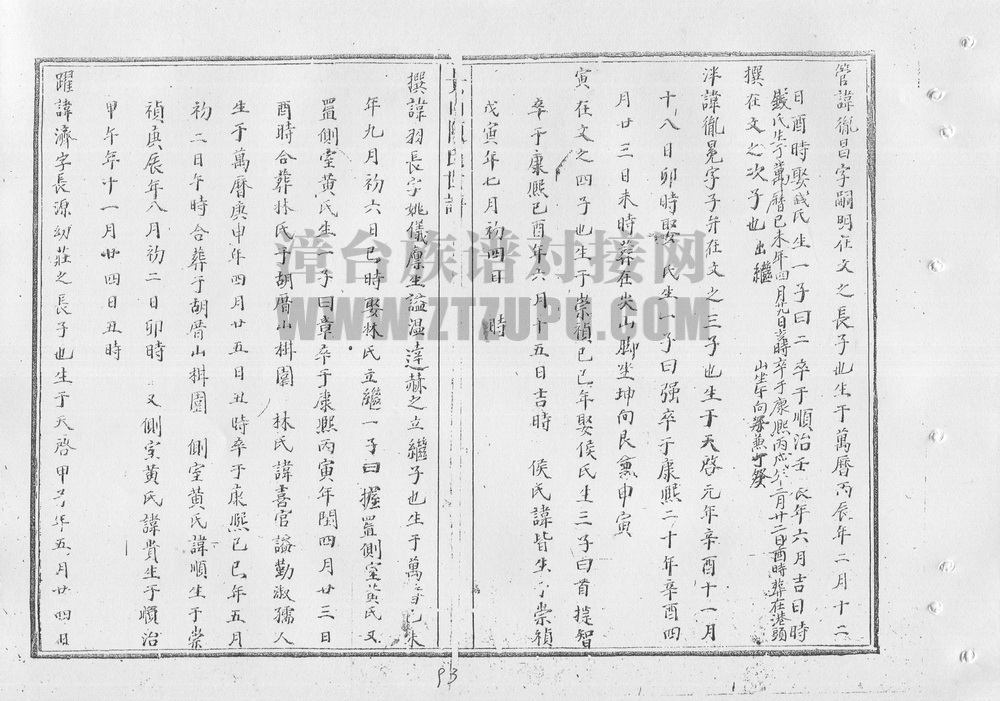 管諱胤昌字嗣明在文之長子也生于萬曆丙辰年二月十二
日酉時娶錢氏生一子曰二 卒于順治壬辰年六月吉日時
錢氏生于萬曆己未年四月九日 時卒于康熙丙 年二月廿二日酉時葬在港頭
山坐午向癸兼丁癸
撰在文之次子也 出繼
泮諱胤冕字子弁在文之三子也生于天啓元年辛酉十一月
十八日卯時娶 氏生一子曰强卒于康熙二十年辛酉四
月廿三日未時葬在尖山脚坐坤向艮兼申寅
寅在文之四子也生于崇禎己巳年娶侯氏生三子曰首提智
卒于康熙己酉年六月十五日吉時 侯氏諱皆生于崇禎
戊寅年七月初四日 時
撰諱羽長字姚儀廪生謚温達赫之立繼子也生于萬曆己未
年九月初六日巳時娶林氏立繼一子曰握置側室黄氏又
置側室黄氏生一子曰章卒于康熙丙寅年閏四月廿三日
酉時合葬林氏于胡厝山栱園 林氏諱喜官謚勤淑孺人
生于萬曆庚申年四月廿五日丑時卒于康熙己巳年五月
初二日午時合葬于胡厝山栱園 側室黄氏諱順生于崇
禎庚辰年八月初二日卯時 又側室黄氏諱貴生于順治
甲午年十一月廿四日丑時
躍諱濟字長源幼莊之長子也生于天啓甲子年五月廿四日
93
漳台族谱对接网
WWW.ZTZUPU.COM